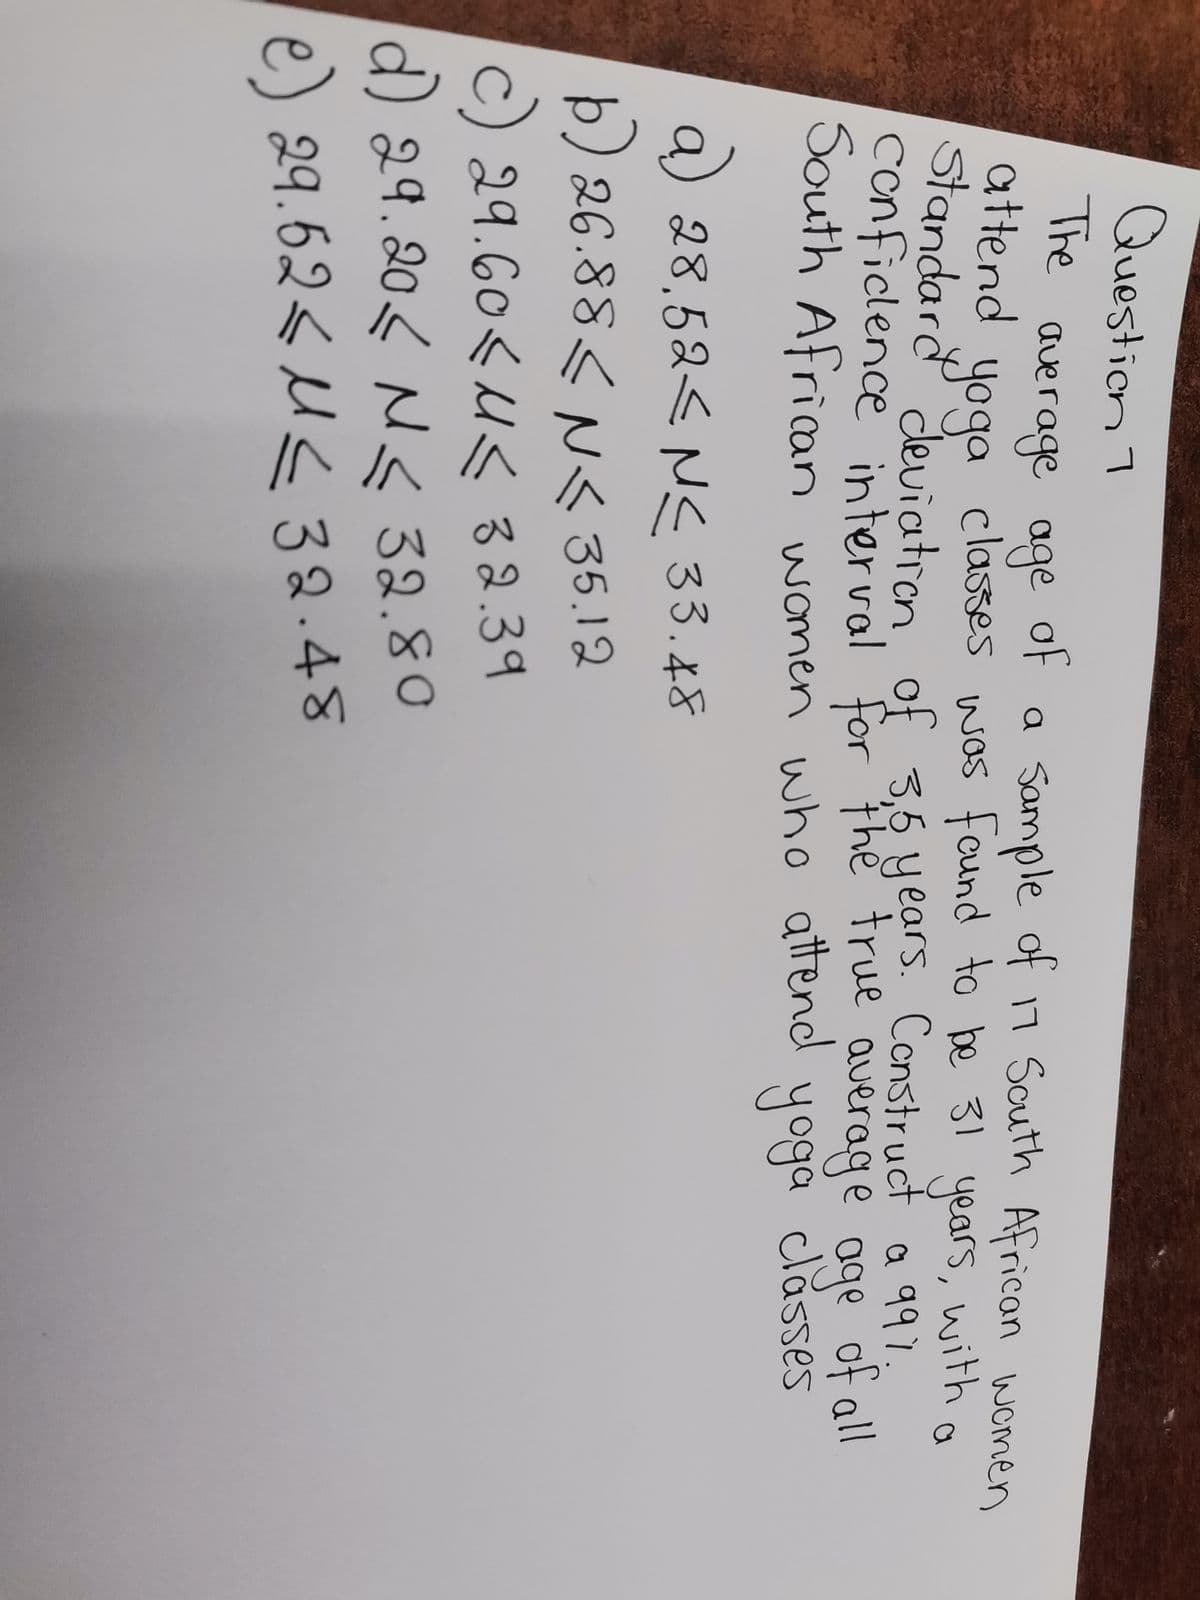 Question 7
The average age of a sample of 17 South African women
attend yoga classes was found to be 31 years, with a
standard deviation of 3,5 years. Construct a 99%
confidence interval for the true average age of all
South African women who attend yoga classes
a) 28,52 ≤ N ≤ 33.48
b) 26.88 ≤ N ≤ 35.12
c) 29.60 ≤ M ≤ 32.39
d) 29.20 ≤ N ≤ 32.80
e) 29.52 ≤ M ≤ 32.48